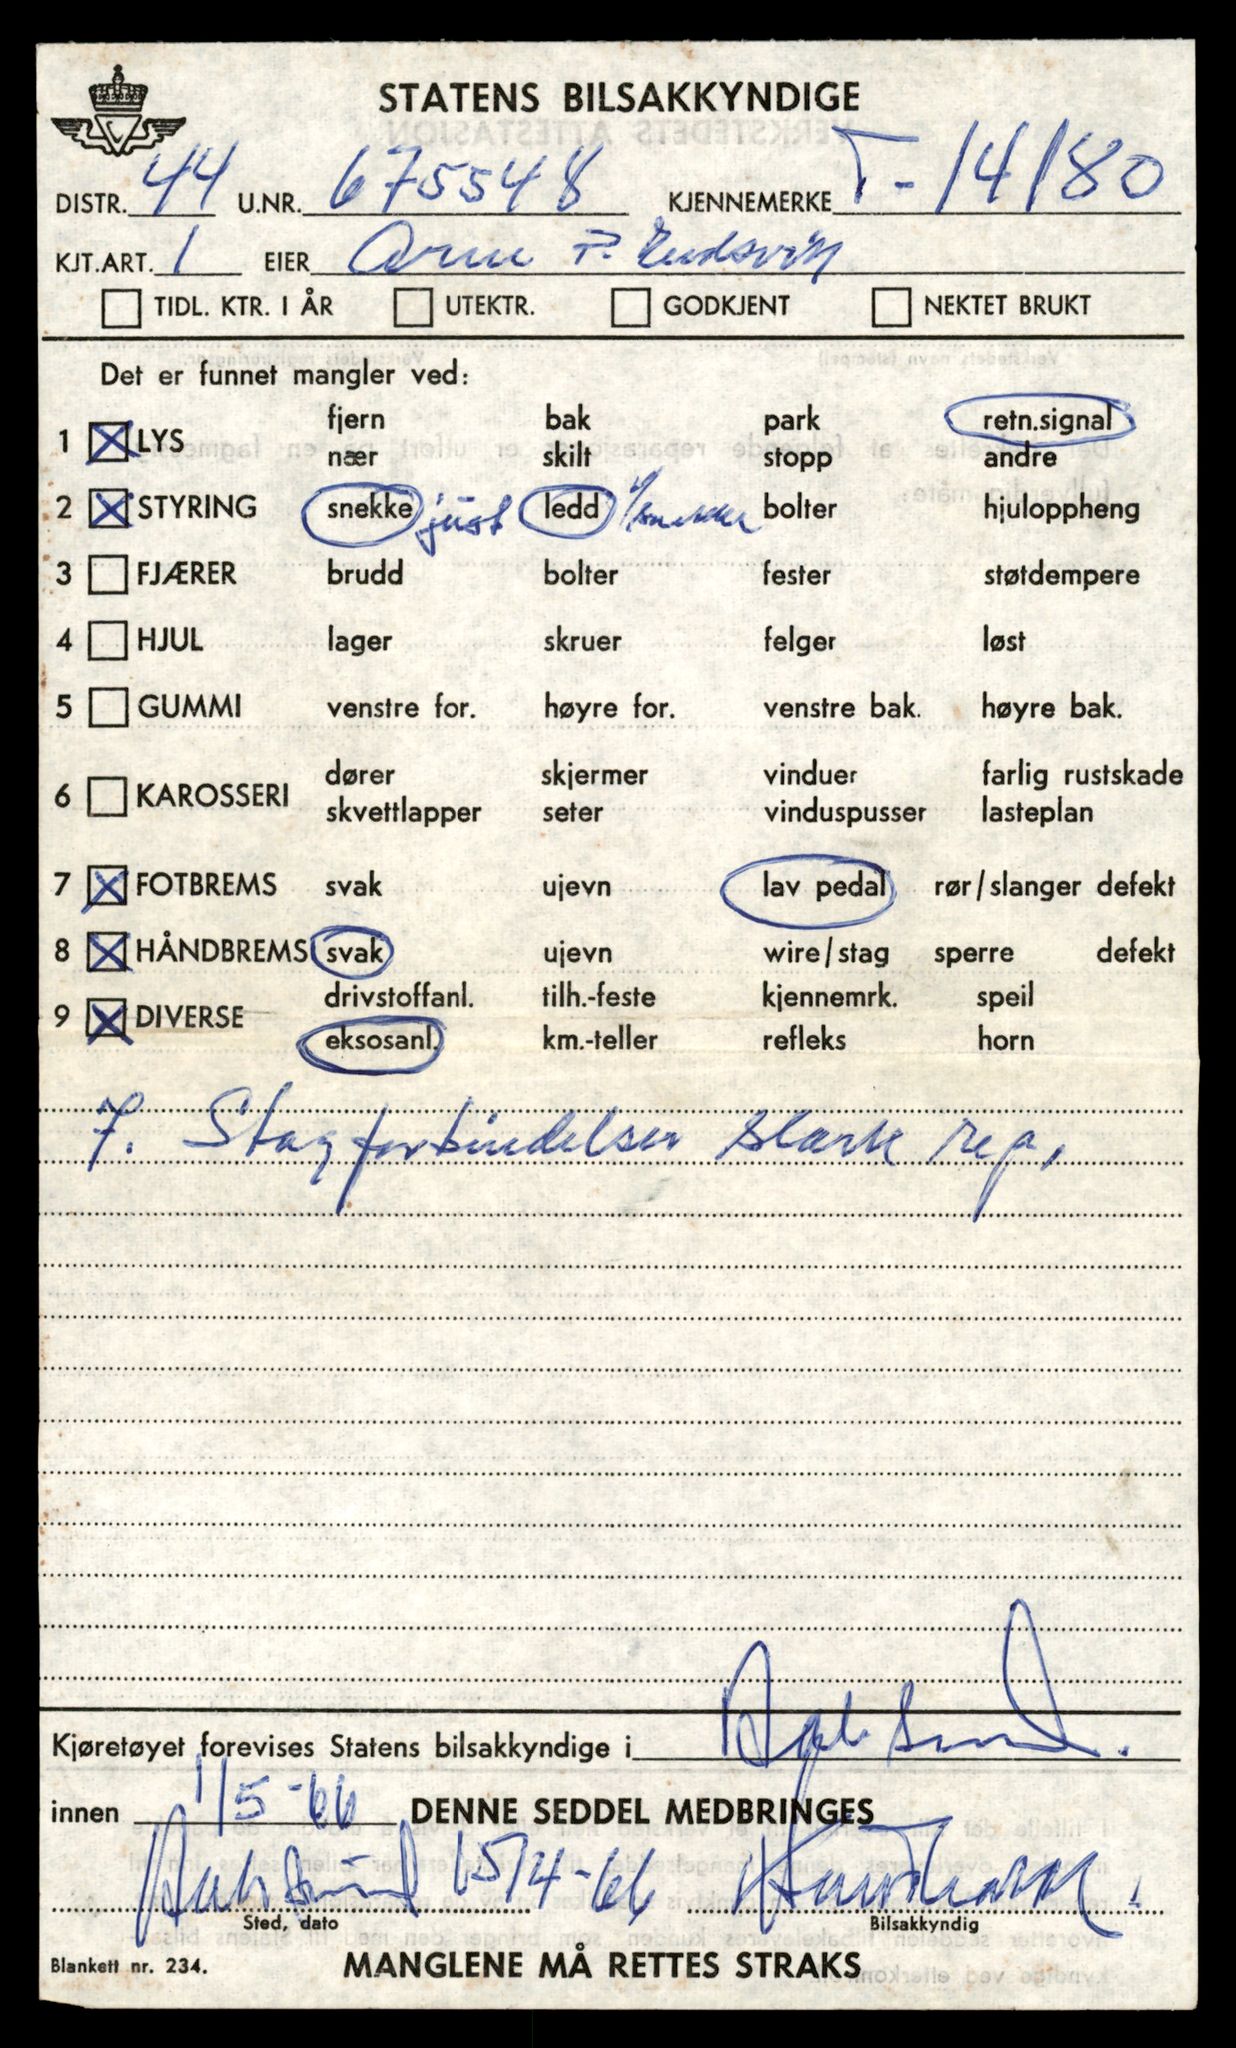 STATENS BILSAKKYNDIGE
DISTR. 44 U.NR. 675548 KJENNEMERKE T-14180
KJT.ART. 1 EIER Arne P.
TIDL. KTR. I ÅR UTEKTR. GODKJENT NEKTET BRUKT
Det er funnet mangler ved:
fjern bak park retn.signal
1 LYS
nær skilt stopp andre
2 STYRING snekke just ledd i/snekke bolter hjuloppheng
3 FJÆRER brudd bolter fester støtdempere
4 HJUL lager skruer felger løst
5 GUMMI venstre for. høyre for. venstre bak. høyre bak.
dører skjermer vinduer farlig rustskade
6 KAROSSERI
skvettlapper seter vinduspusser lasteplan
7 FOTBREMS svak ujevn lav pedal rør/slanger defekt
8 HÅNDBREMS svak ujevn wire/stag sperre defekt
drivstoffanl. tilh.-feste kjennemrk. speil
9 DIVERSE
eksosanl. km.-teller refleks horn
7. Stagforbindelser slark rep.
Kjøretøyet forevises Statens bilsakkyndige i
innen 1/5-66 DENNE SEDDEL MEDBRINGES
15/4-66
Sted, dato Bilsakkyndig
Blankett nr. 234. MANGLENE MÅ RETTES STRAKS